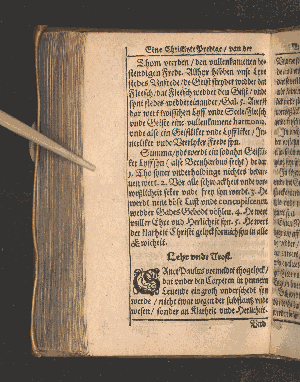 Eine Christlike Predige / van der
Thom werden / den vullenkamenen be-
stendigen Frede. Alhyr hebben unse Lede
stedes Unfrede / de Geist strydet wedder den
Fleisch / dat Fleisch wedder den Geist / unde
synt stedes weddereinander / Gal. 5. Averst
dar wert twisschen Lyff unde Seele / Fleisch
unde Geiste eine vullenkamene harmonia,
unde alse ein Geistliker unde Lyffliker / In-
nerliker unde Uterlyker Frede syn.
Summa / ydt werdt ein sodahn Geistli-
ker Lyff syn ( alse Bernhardus secht ) de dar
1. Tho syner underholdinge nichtes behö-
ven wert. 2. Van alle schwackheit unde vor-
weßlicheit seker unde frey syn werdt. 3. He
werdt nene böse Lust unde concupiscentien
wedder Gades Gebodt hebben. 4. He wert
vuller Ehre und Herlicheit syn. 5. He wert
der Klarheit Christi gelyckformich syn in alle
Ewicheit.
Lehr unde Trost.
SAnct Paulus vermeldt
dat under den Cörperen in yennem
Levende ein groth underscheidt syn
werde / nicht twar wegen der substantz unde
wesen / sonder an Klarheit unde Herlicheit.
Und